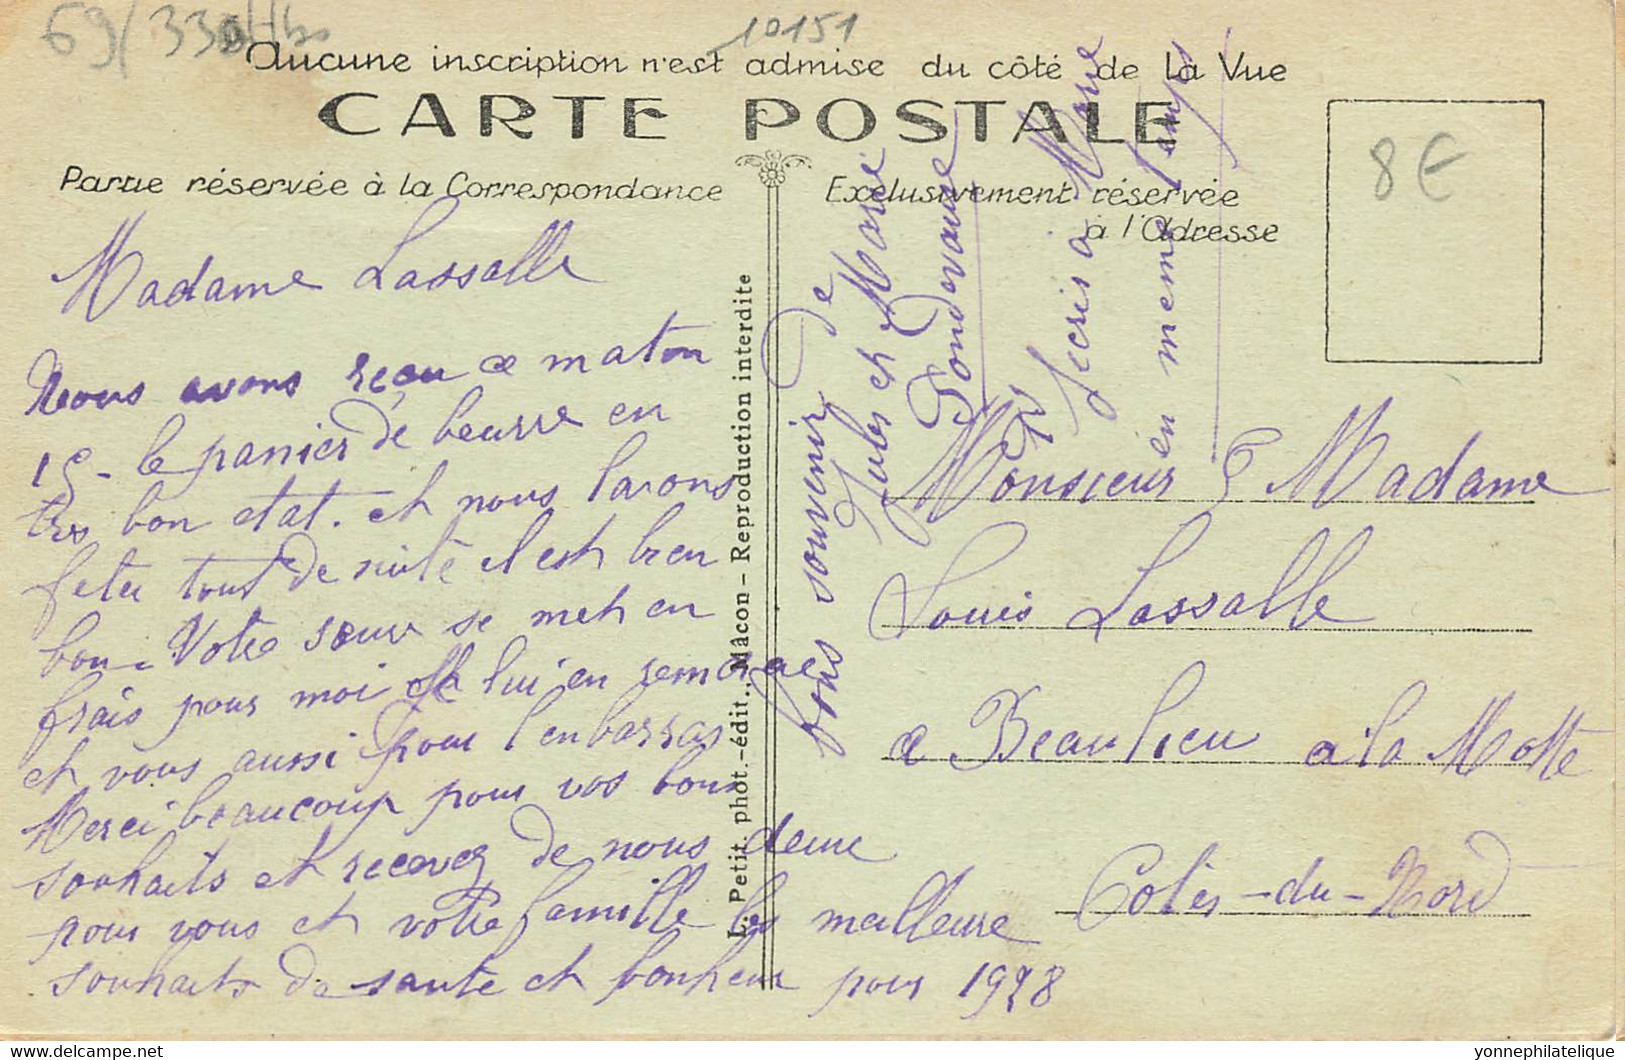 69/33
10151
Aucune inscription n'est admise du côté de la Vue
CARTE POSTALE
Partie réservée à la Correspondance
Exclusivement réservée
à l'Adresse
8€
Madame Lassalle
Nous avons reçu ce maton
le panier de beurre en
tres bon etat. et nous lavons
feter tout de suite il est bien
bon. Votre seur se met en
frais pour moi et lui en remercie
et vous aussi pour lenbarras
Merci beaucoup pour vos bons
souhaits et recevez de nous deux
pour vous et votre famille les meilleure
souhaits de sante et bonheur pour 1928
bons souvenir de
Jules et Marie
Jecris a Marie
en meme temps
Monsieur & Madame
Louis Lassalle
a Beaulieu a la Motte
Cotes-du-Nord
L. Petit, phot.-édit., Mâcon - Reproduction interdite
www.delcampe.net
yonnephilatelique